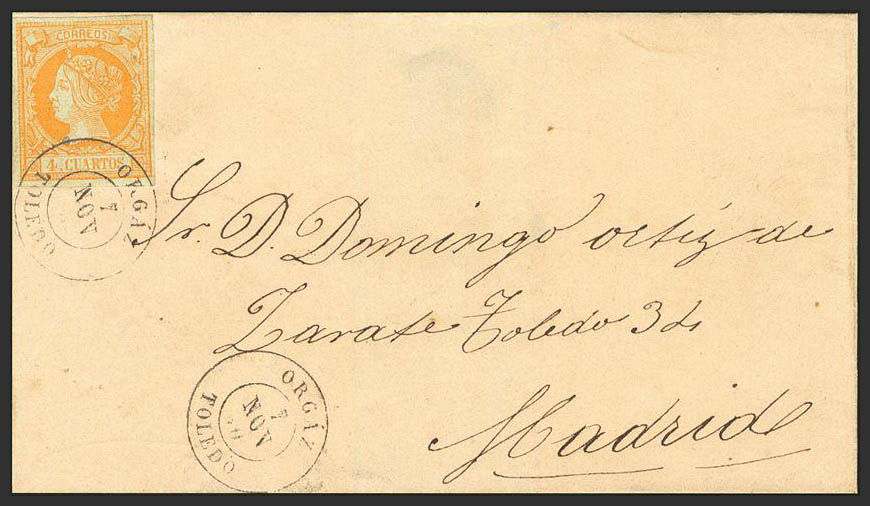 CORREOS
4. CUARTOS
ORGÁZ
7
NOV
TOLEDO
Sr. D. Domingo ortiz de
Zarate Toledo 3
Madrid
ORGÁZ
7
NOV
TOLEDO